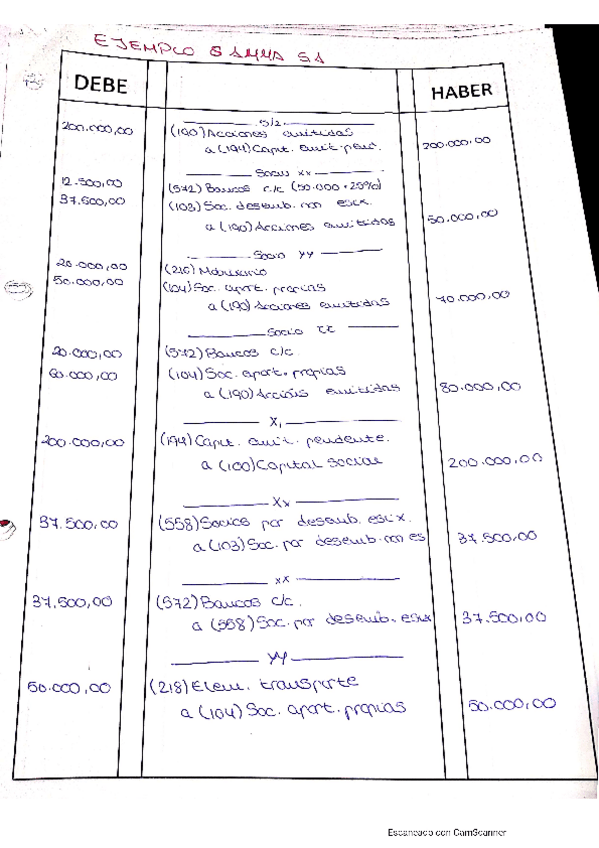 EJEMPLO GAMMA SA
DEBE
HABER
5/2
200.000,00 (190) Acciones emitidas
a (194) Capt. emit. pen. 200.000,00
Socio xx
12.500,00 (572) Bancos c/c (50.000 · 25%)
37.500,00 (103) Soc. desemb. non esix.
a (190) Acciones emitidas 50.000,00
Socio yy
20.000,00 (216) Mobiliario
50.000,00 (104) Soc. aport. propias
a (190) Acciones emitidas 70.000,00
Socio zz
20.000,00 (572) Bancos c/c
60.000,00 (104) Soc. aport. propias
a (190) Accións emitidas 80.000,00
X,
200.000,00 (194) Capt. emit. pendente.
a (100) Capital social 200.000,00
Xx
37.500,00 (558) Socios por desemb. esix.
a (103) Soc. por desemb. non es 37.500,00
xx
37.500,00 (572) Bancos c/c.
a (558) Soc. por desemb. esix 37.500,00
yy
50.000,00 (218) Elem. transporte
a (104) Soc. aport. propias 50.000,00
Escaneado con CamScanner